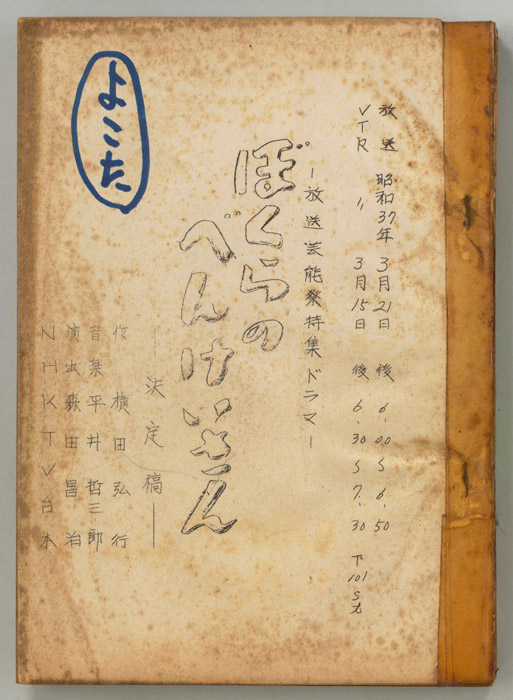 放送 昭和37年 3月21日 後 6.00〜6.50
VTR 〃 3月15日 後 6.30〜7.30 下101St
―放送芸能祭特集ドラマ―
ぼくらの
べんけいさん
―決定稿―
作 横田弘行
音楽 平井哲三郎
演出 森田昌治
NHKTV台本
よこた